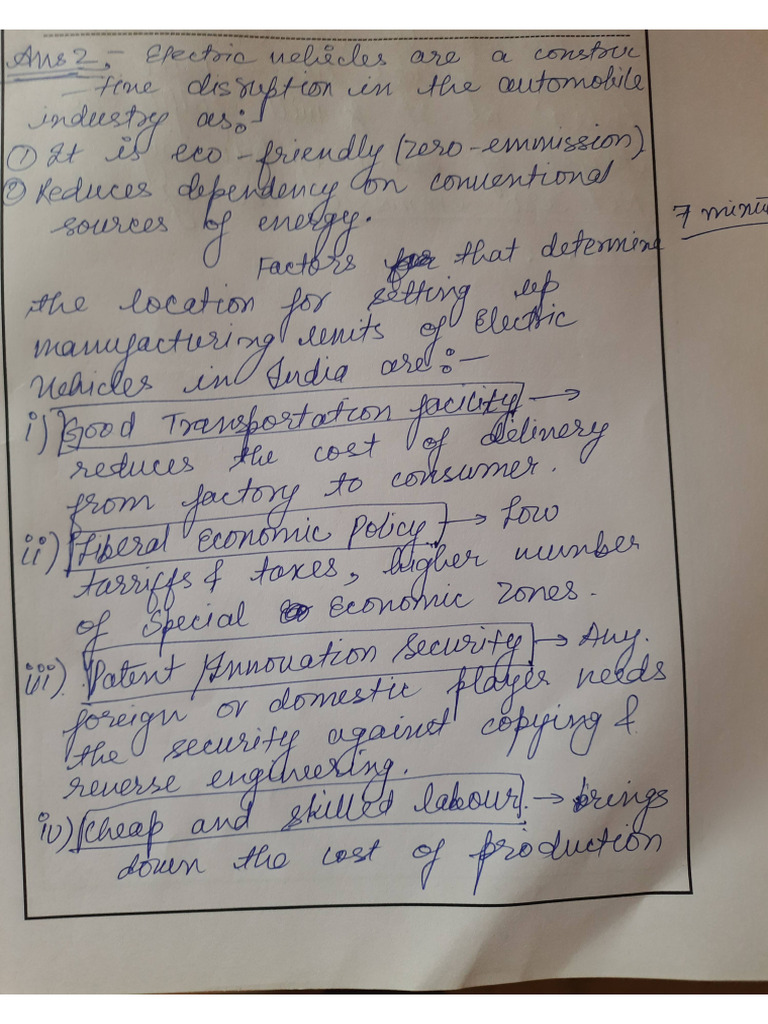 Ans 2.- Electric vehicles are a constru
-tive disruption in the automobile
industry as:-
① It is eco-friendly (zero-emmission)
② Reduces dependency on conventional
sources of energy.
7 minu
Factors that determine
the location for setting up
manufacturing units of Electric
Vehicles in India are:-
i) Good Transportation facility →
reduces the cost of delivery
from factory to consumer.
ii) Liberal Economic Policy → Low
tarriffs & taxes, higher number
of Special Economic zones.
iii) Patent/Innovation Security → Any.
foreign or domestic player needs
the security against copying &
reverse engineering.
iv) Cheap and skilled labour. → brings
down the cost of production